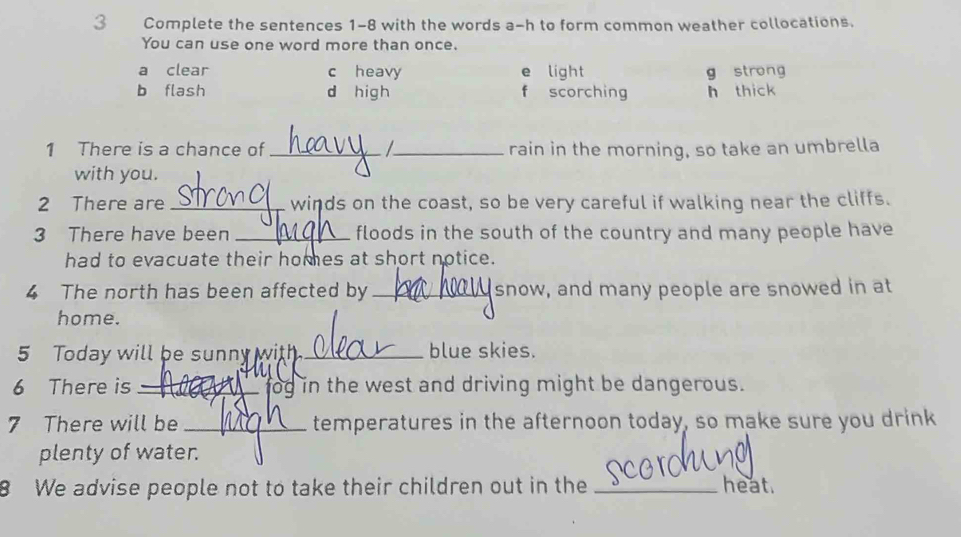 3 Complete the sentences 1-8 with the words a-h to form common weather collocations.
You can use one word more than once.
a clear c heavy e light g strong
b flash d high f scorching h thick
1 There is a chance of heavy / ________ rain in the morning, so take an umbrella
with you.
2 There are strong winds on the coast, so be very careful if walking near the cliffs.
3 There have been high floods in the south of the country and many people have
had to evacuate their homes at short notice.
4 The north has been affected by heavy snow, and many people are snowed in at
home.
5 Today will be sunny with clear blue skies.
thick
6 There is heavy fog in the west and driving might be dangerous.
7 There will be high temperatures in the afternoon today, so make sure you drink
plenty of water.
8 We advise people not to take their children out in the scorching heat.